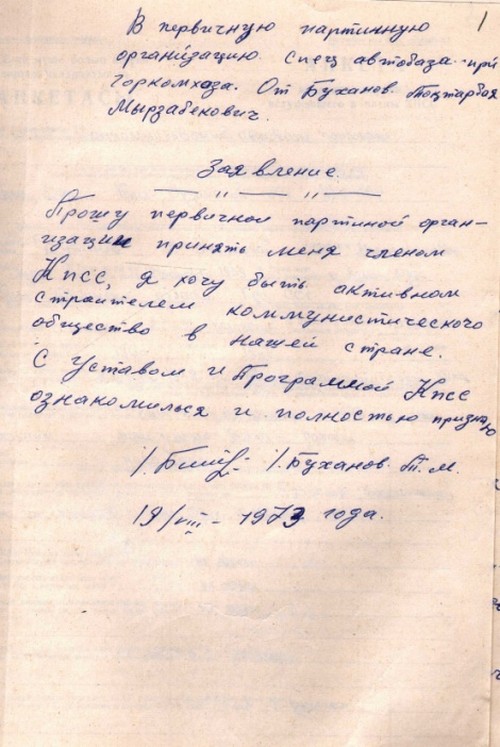 1
В первичную партинную
организацию. Спец автобаза при
Горкомхоза. От Буханов Токтарбая
Мырзабекович.
Заявление.
Прошу первичной партиной орган-
изации принять меня членом
Кпсс, я хочу быть активном
строителем коммунистического
общество в нашей стране.
С уставом и Программой Кпсс
ознакомилься и полностью признаю
Буханов. Т. М.
19/VIII - 1973 года.